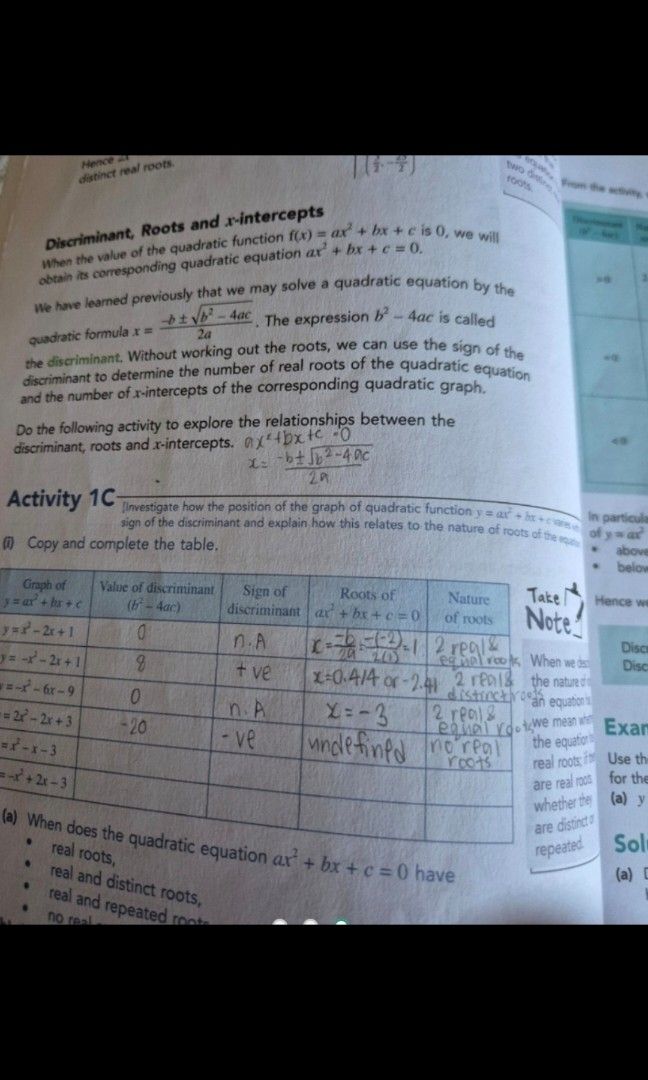 Hence
distinct real roots.
two
roots.
From the activity,
Discriminant, Roots and x-intercepts
When the value of the quadratic function f(x) = ax² + bx + c is 0, we will
obtain its corresponding quadratic equation ax² + bx + c = 0.
We have learned previously that we may solve a quadratic equation by the
quadratic formula x = (-b ± √(b² – 4ac))/2a. The expression b² – 4ac is called
the discriminant. Without working out the roots, we can use the sign of the
discriminant to determine the number of real roots of the quadratic equation
and the number of x-intercepts of the corresponding quadratic graph.
Do the following activity to explore the relationships between the
discriminant, roots and x-intercepts. ax²+bx+c=0
x = (-b±√(b²-4ac))/2a
Activity 1C
[Investigate how the position of the graph of quadratic function y = ax² + bx + c varies
sign of the discriminant and explain how this relates to the nature of roots of the
(i) Copy and complete the table.
Graph of y = ax² + bx + c Value of discriminant (b² – 4ac) Sign of discriminant Roots of ax² + bx + c = 0 Nature of roots
y = x² – 2x + 1 0 n.A x = -b/2a = -(-2)/2(1) = 1 2 real & equal roots
y = –x² – 2x + 1 8 +ve x=0.414 or -2.41 2 real & distinct roots
y = –x² – 6x – 9 0 n.A x = -3 2 real & equal roots
= 2x² – 2x + 3 -20 -ve undefined no real roots
= x² – x – 3
= –x² + 2x – 3
Take
Note!
When we
the nature of
an equation
we mean
the equation
real roots; if
are real roots
whether they
are distinct
repeated.
(a) When does the quadratic equation ax² + bx + c = 0 have
• real roots,
• real and distinct roots,
• real and repeated roots
• no real
In
of y = ax²
•
•
Hence
Use
for the
(a) y
(a)